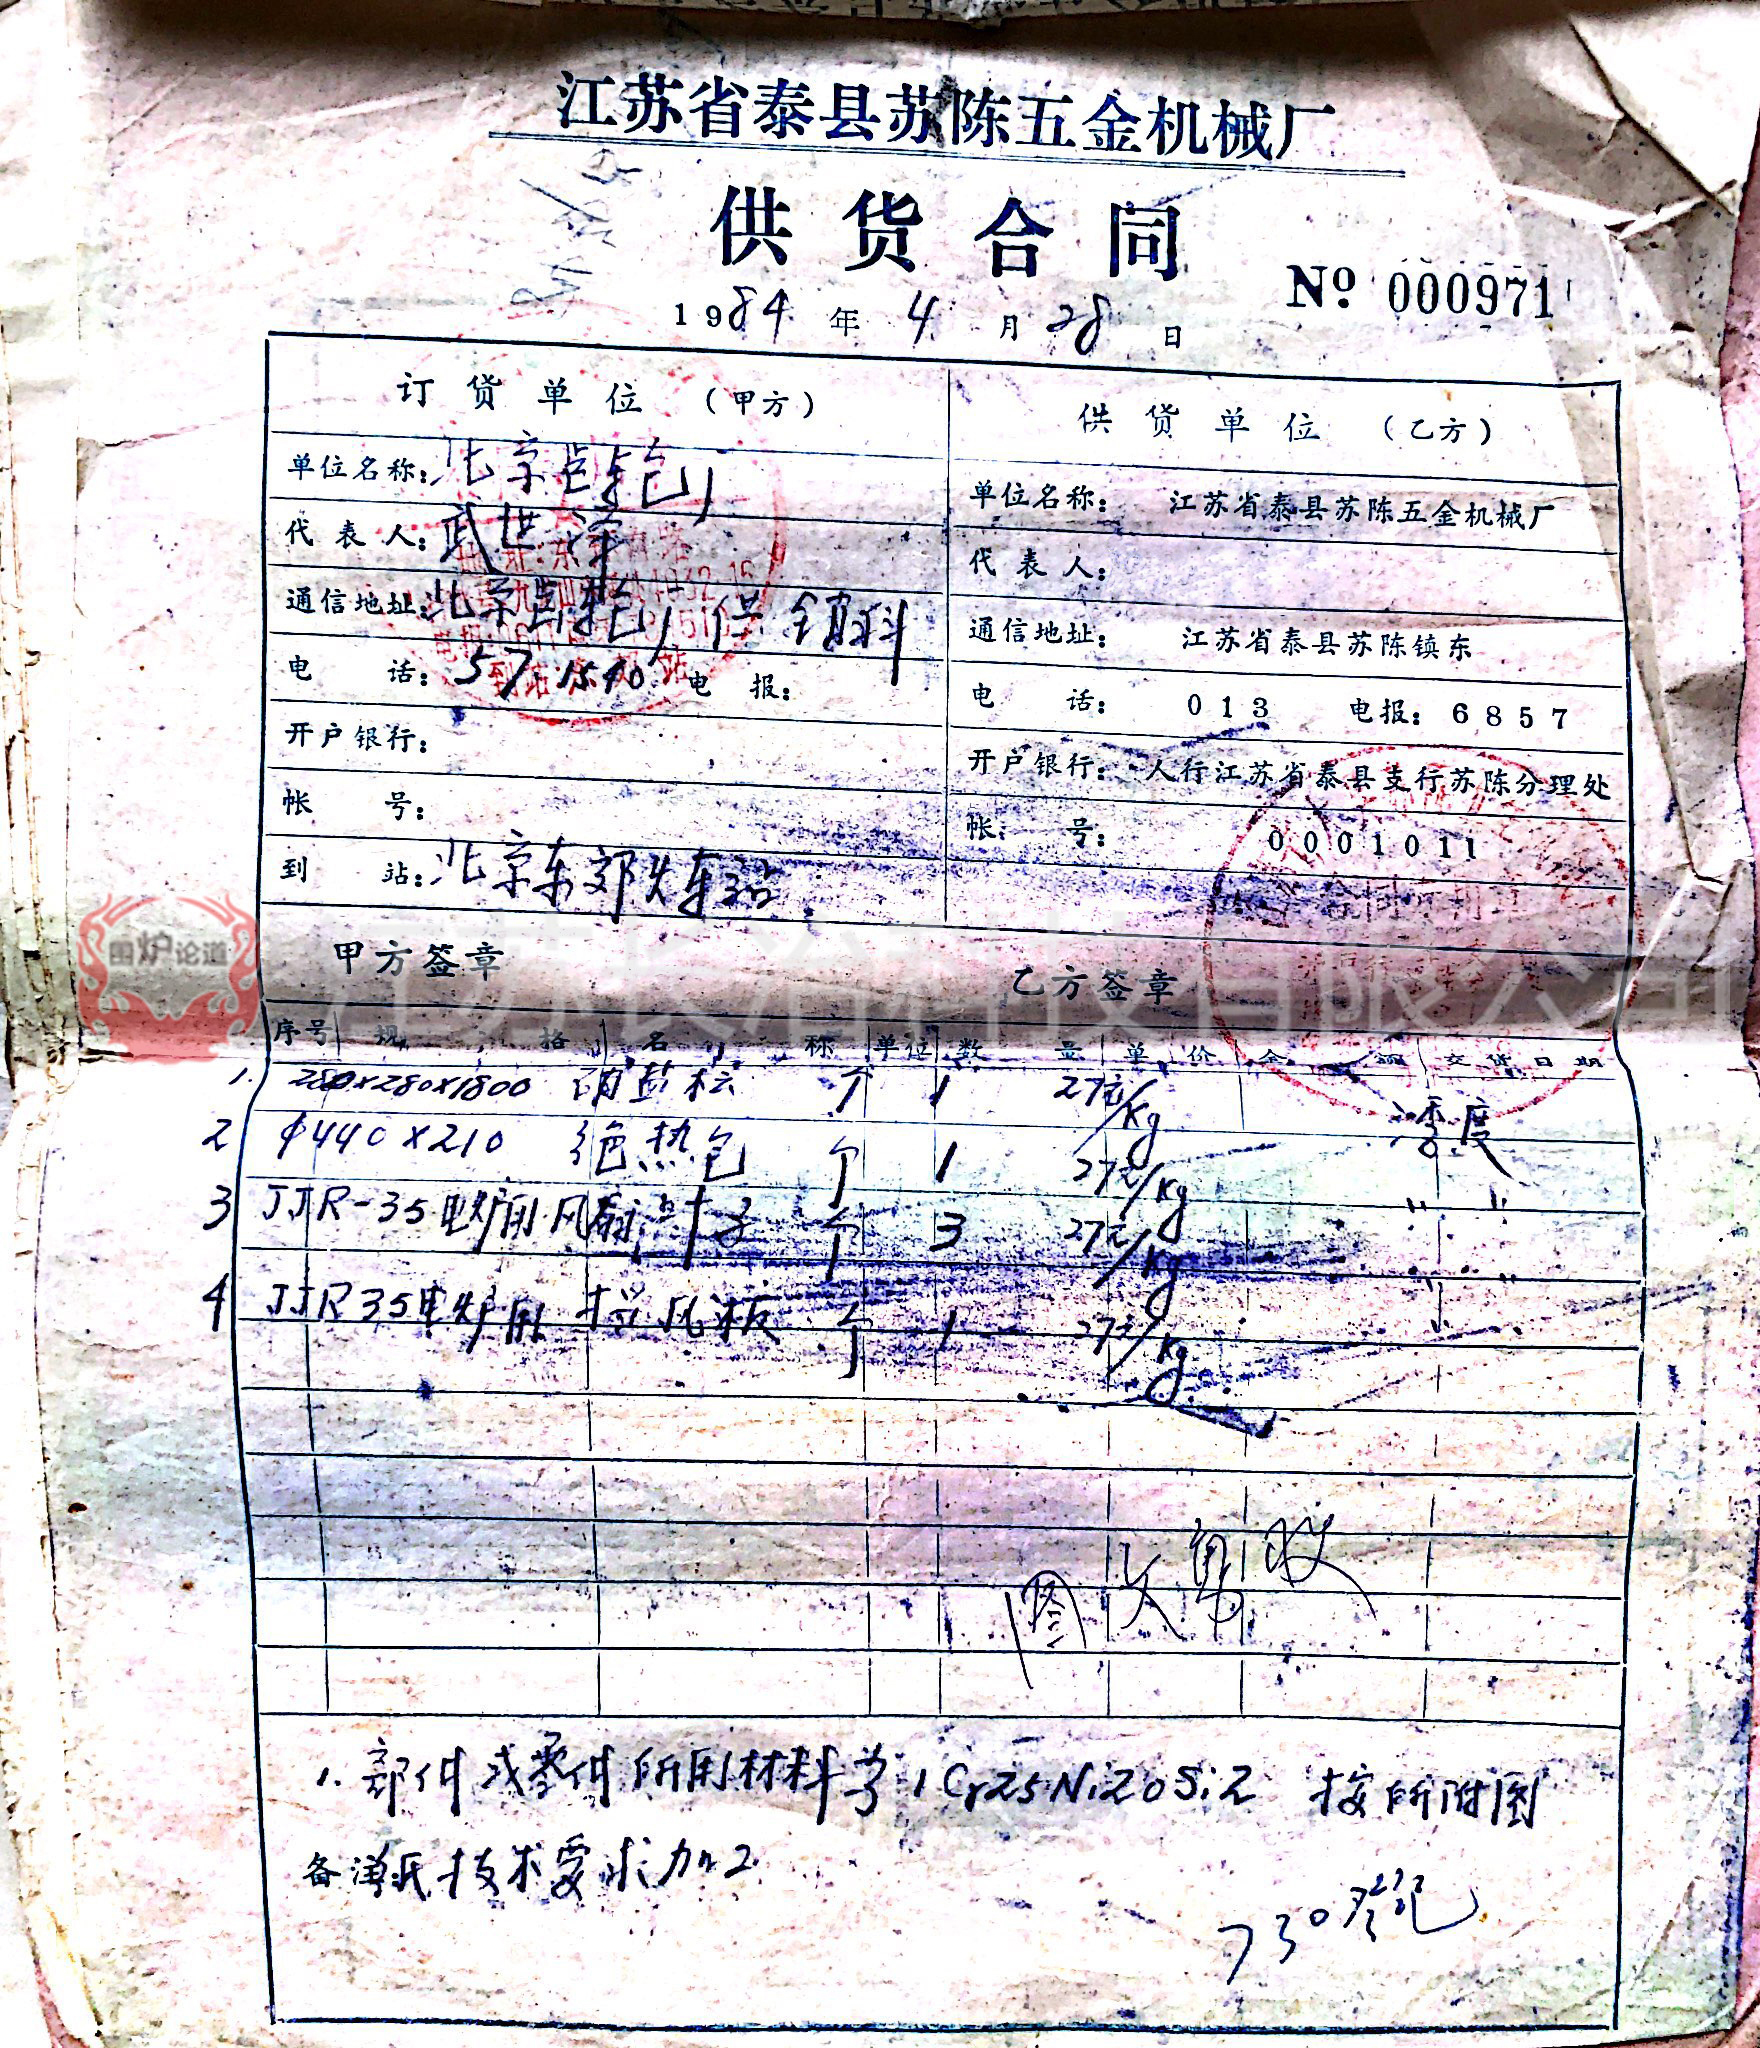 江苏省泰县苏陈五金机械厂
供货合同
No 000971
1984年4月28日
订货单位（甲方）
供货单位（乙方）
单位名称：北京齿轮厂
单位名称：江苏省泰县苏陈五金机械厂
代表人：武世泽
代表人：
通信地址：北京齿轮厂供销科
通信地址：江苏省泰县苏陈镇东
电话：57.1540 电报：
电话：013 电报：6857
开户银行：
开户银行：人行江苏省泰县支行苏陈分理处
帐号：
帐号：0001011
到站：北京东郊火车站
围炉论道
甲方签章
乙方签章
序号 规格 名称 单位 数量 单价 金额 交货日期
1. 280×280×1800 硝盐坛 个 1 27元/Kg 季度
2 φ440×210 绝热包 个 1 27元/Kg 〃 〃
3 JJR-35电炉用风扇叶子 个 3 27元/Kg 〃 〃
4 JJR35电炉用 挡风板 个 1 27元/Kg 〃
图
1. 部件或零件所用材料为1Cr25Ni20Si2 按所附图
备注 纸技术要求加工
730登记